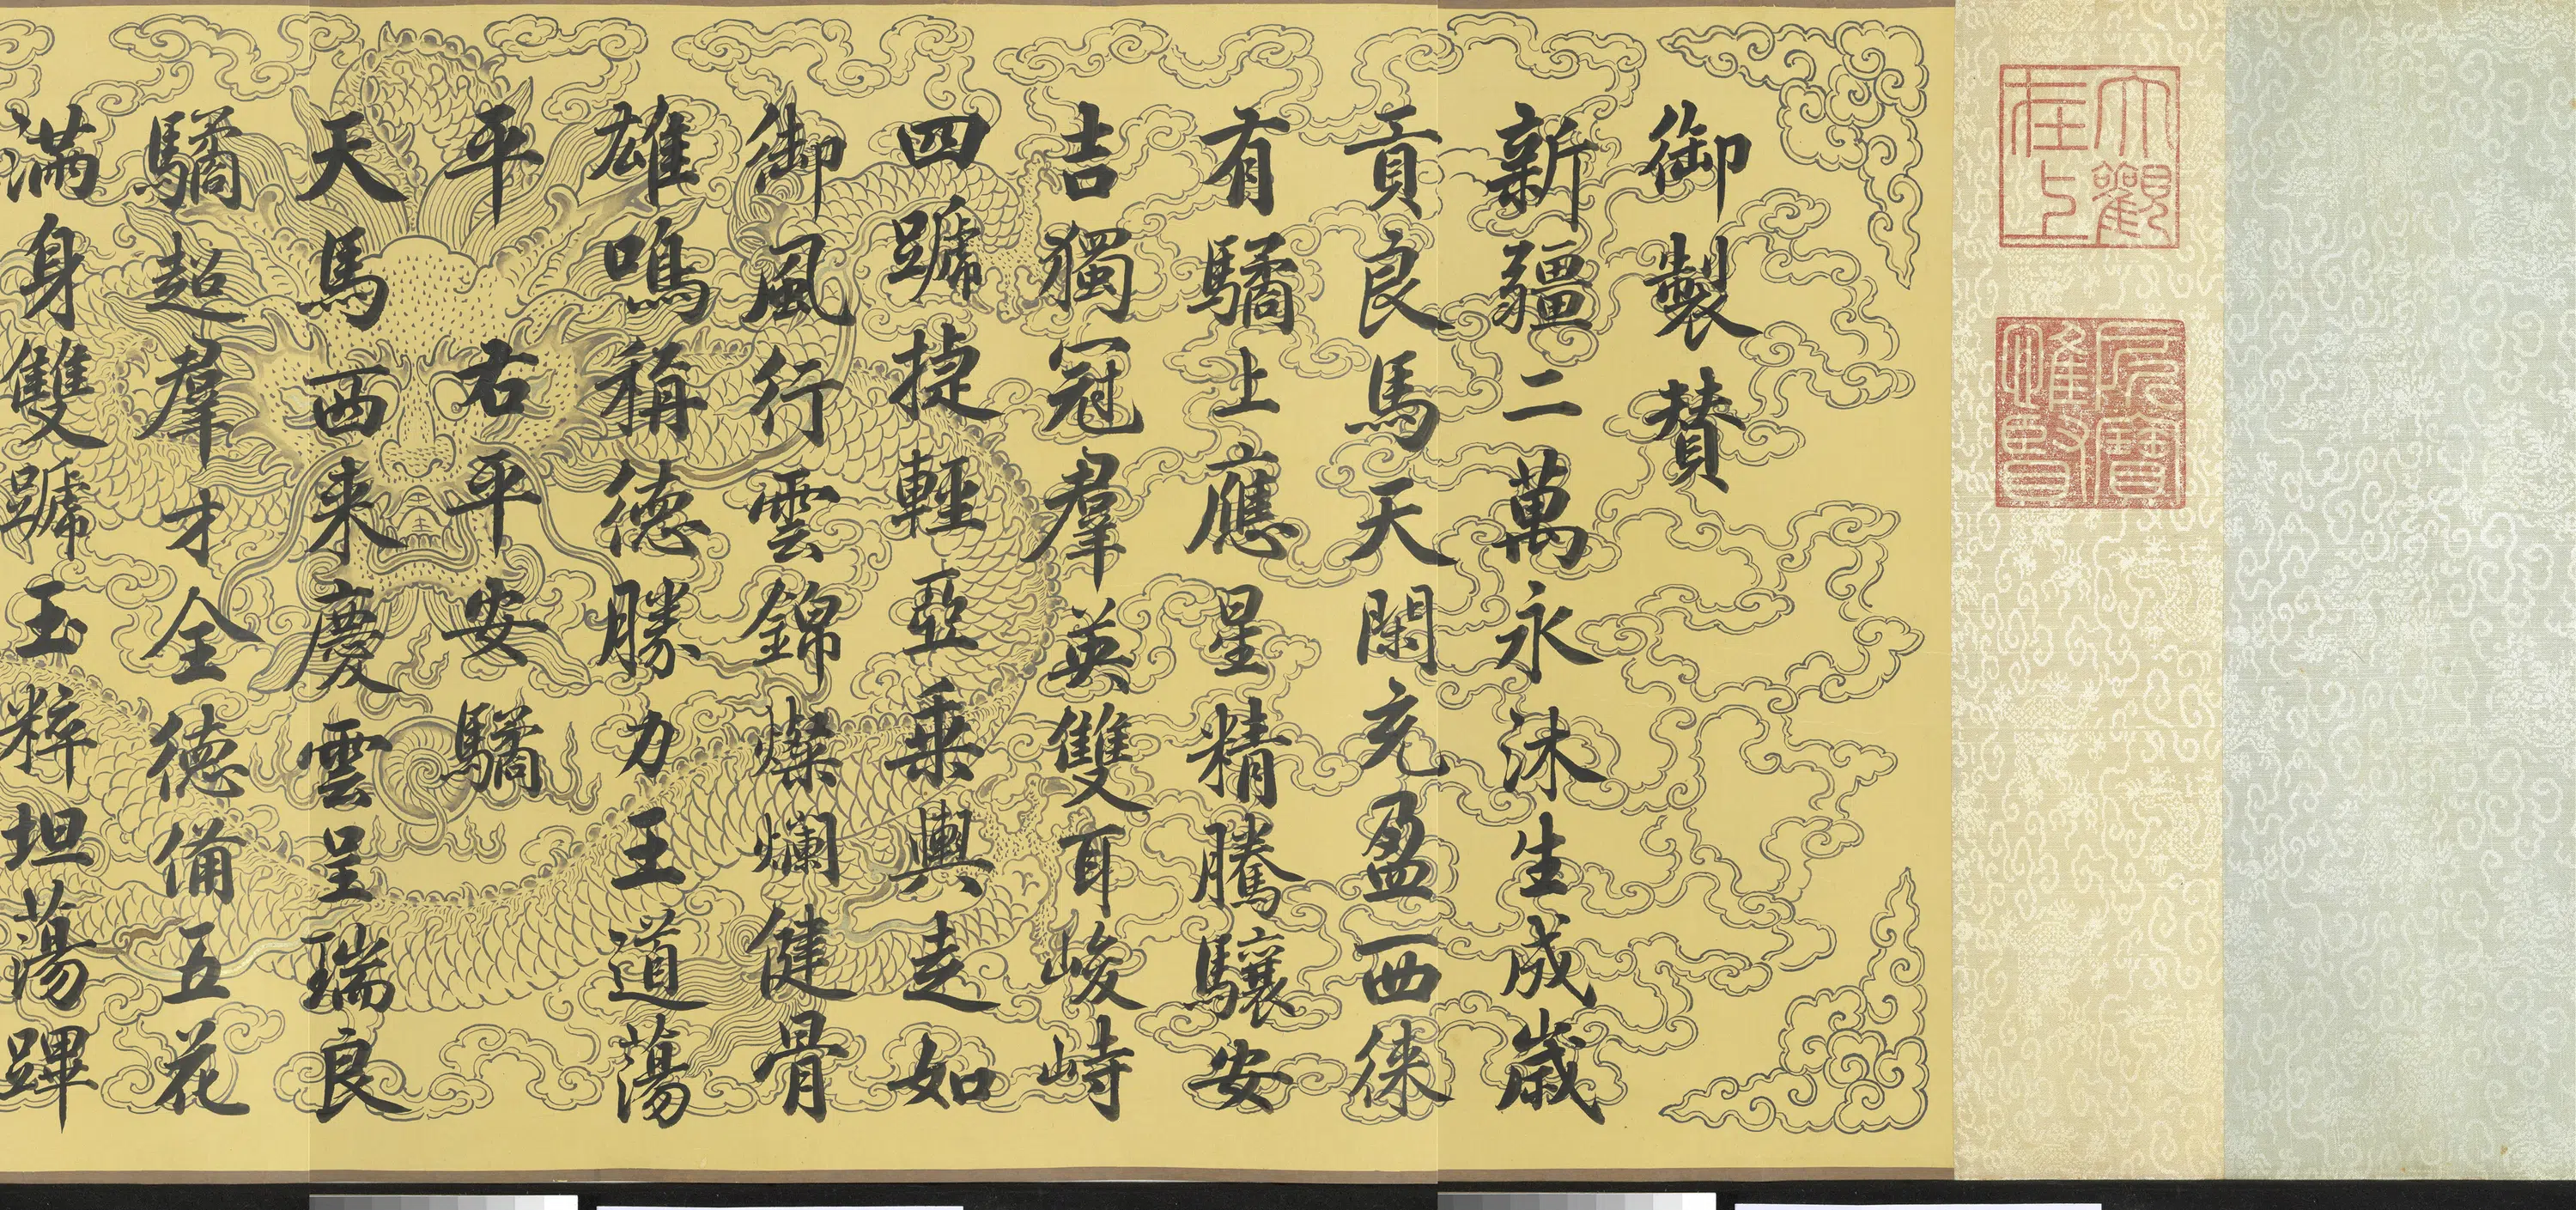 大觀在上
所寶惟賢
御製賛
新疆二萬永沐生成歲
貢良馬天閑充盈西徠
有驈上應星精騰驤安
吉獨冠羣英雙耳峻峙
四蹏捷輕亞乘輿走如
御風行雲錦燦爛健骨
雄鳴稱德勝力王道蕩
平 右平安驈
天馬西来慶雲呈瑞良
驈超羣才全德備五花
滿身雙蹏玉粹坦蕩蹕